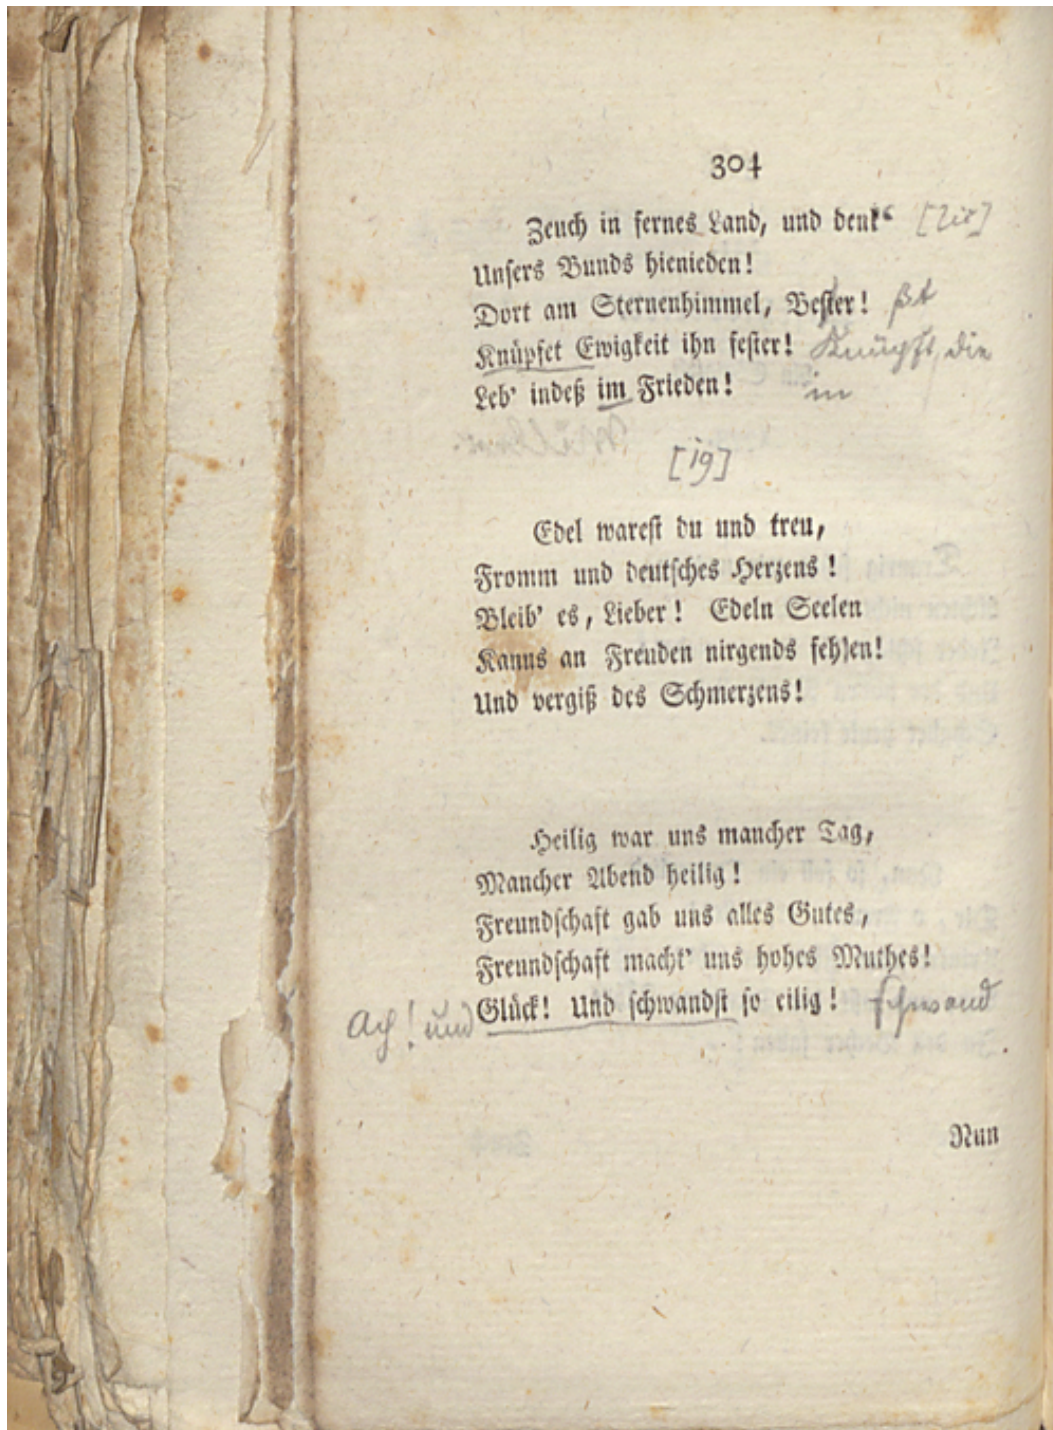 304
Zeuch in fernes Land, und denk‘
Unsers Bunds hienieden!
Dort am Sternenhimmel, Bester! ßt
Knüpfet Ewigkeit ihn fester! Knüpft die
Leb’ indeß im Frieden! in
[ig]
Edel warest du und treu,
Fromm und deutsches Herzens!
Bleib’ es, Lieber! Edeln Seelen
Kanns an Freuden nirgends fehlen!
Und vergiß des Schmerzens!
Heilig war uns mancher Tag,
Mancher Abend heilig!
Freundschaft gab uns alles Gutes,
Freundschaft macht’ uns hohes Muthes!
Ach! und Glück! Und schwandst so eilig! schwand
Nun